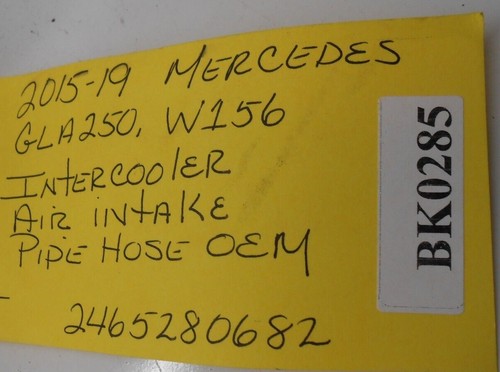 2015-19 MERCEDES
GLA250, W156
INtERCOOlER
AIR INtAKE
PIPE HOSE OEM
2465280682
BK0285